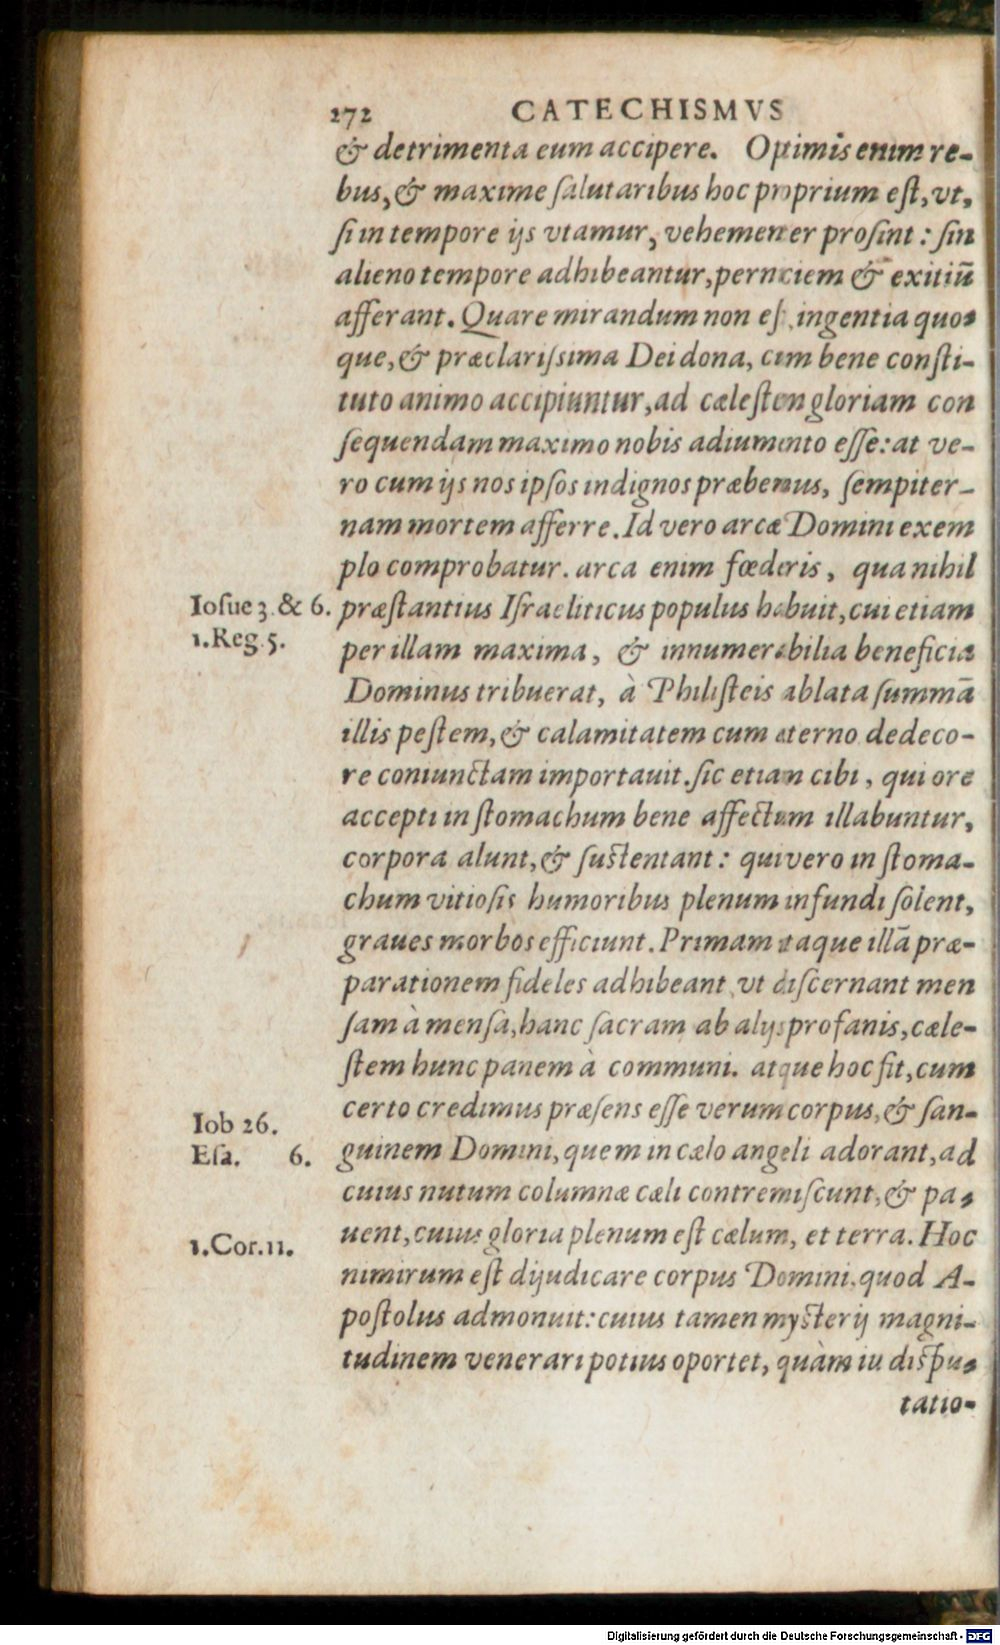 272 CATECHISMVS
& detrimenta eum accipere. Optimis enim re-
bus, & maxime salutaribus hoc proprium est, vt,
si in tempore ijs vtamur, vehementer prosint: sin
alieno tempore adhibeantur, perniciem & exitiũ
afferant. Quare mirandum non est, ingentia quo-
que, & præclarissima Dei dona, cum bene consti-
tuto animo accipiuntur, ad cælestem gloriam con
sequendam maximo nobis adiumento esse: at ve-
ro cum ijs nos ipsos indignos præbemus, sempiter-
nam mortem afferre. Id vero arcæ Domini exem
plo comprobatur. arca enim fœderis, qua nihil
Iosue 3. & 6. præstantius Israeliticus populus habuit, cui etiam
1.Reg.5. per illam maxima, & innumerabilia beneficia
Dominus tribuerat, à Philisteis ablata summã
illis pestem, & calamitatem cum æterno dedeco-
re coniunctam importauit. sic etiam cibi, qui ore
accepti in stomachum bene affectum illabuntur,
corpora alunt, & sustentant: qui vero in stoma-
chum vitiosis humoribus plenum infundi solent,
graues morbos efficiunt. Primam itaque illã præ-
parationem fideles adhibeant, vt discernant men
sam à mensa, hanc sacram ab alijs profanis, cæle-
stem hunc panem à communi. atque hoc fit, cum
certo credimus præsens esse verum corpus, & san-
Iob 26.
Esa. 6. guinem Domini, quem in cælo angeli adorant, ad
cuius nutum columnæ cæli contremiscunt, & pa-
1.Cor.11. uent, cuius gloria plenum est cælum, et terra. Hoc
nimirum est dijudicare corpus Domini, quod A-
postolus admonuit: cuius tamen mysterij magni-
tudinem venerari potius oportet, quàm in dispu-
tatio-
Digitalisierung gefördert durch die Deutsche Forschungsgemeinschaft - DFG